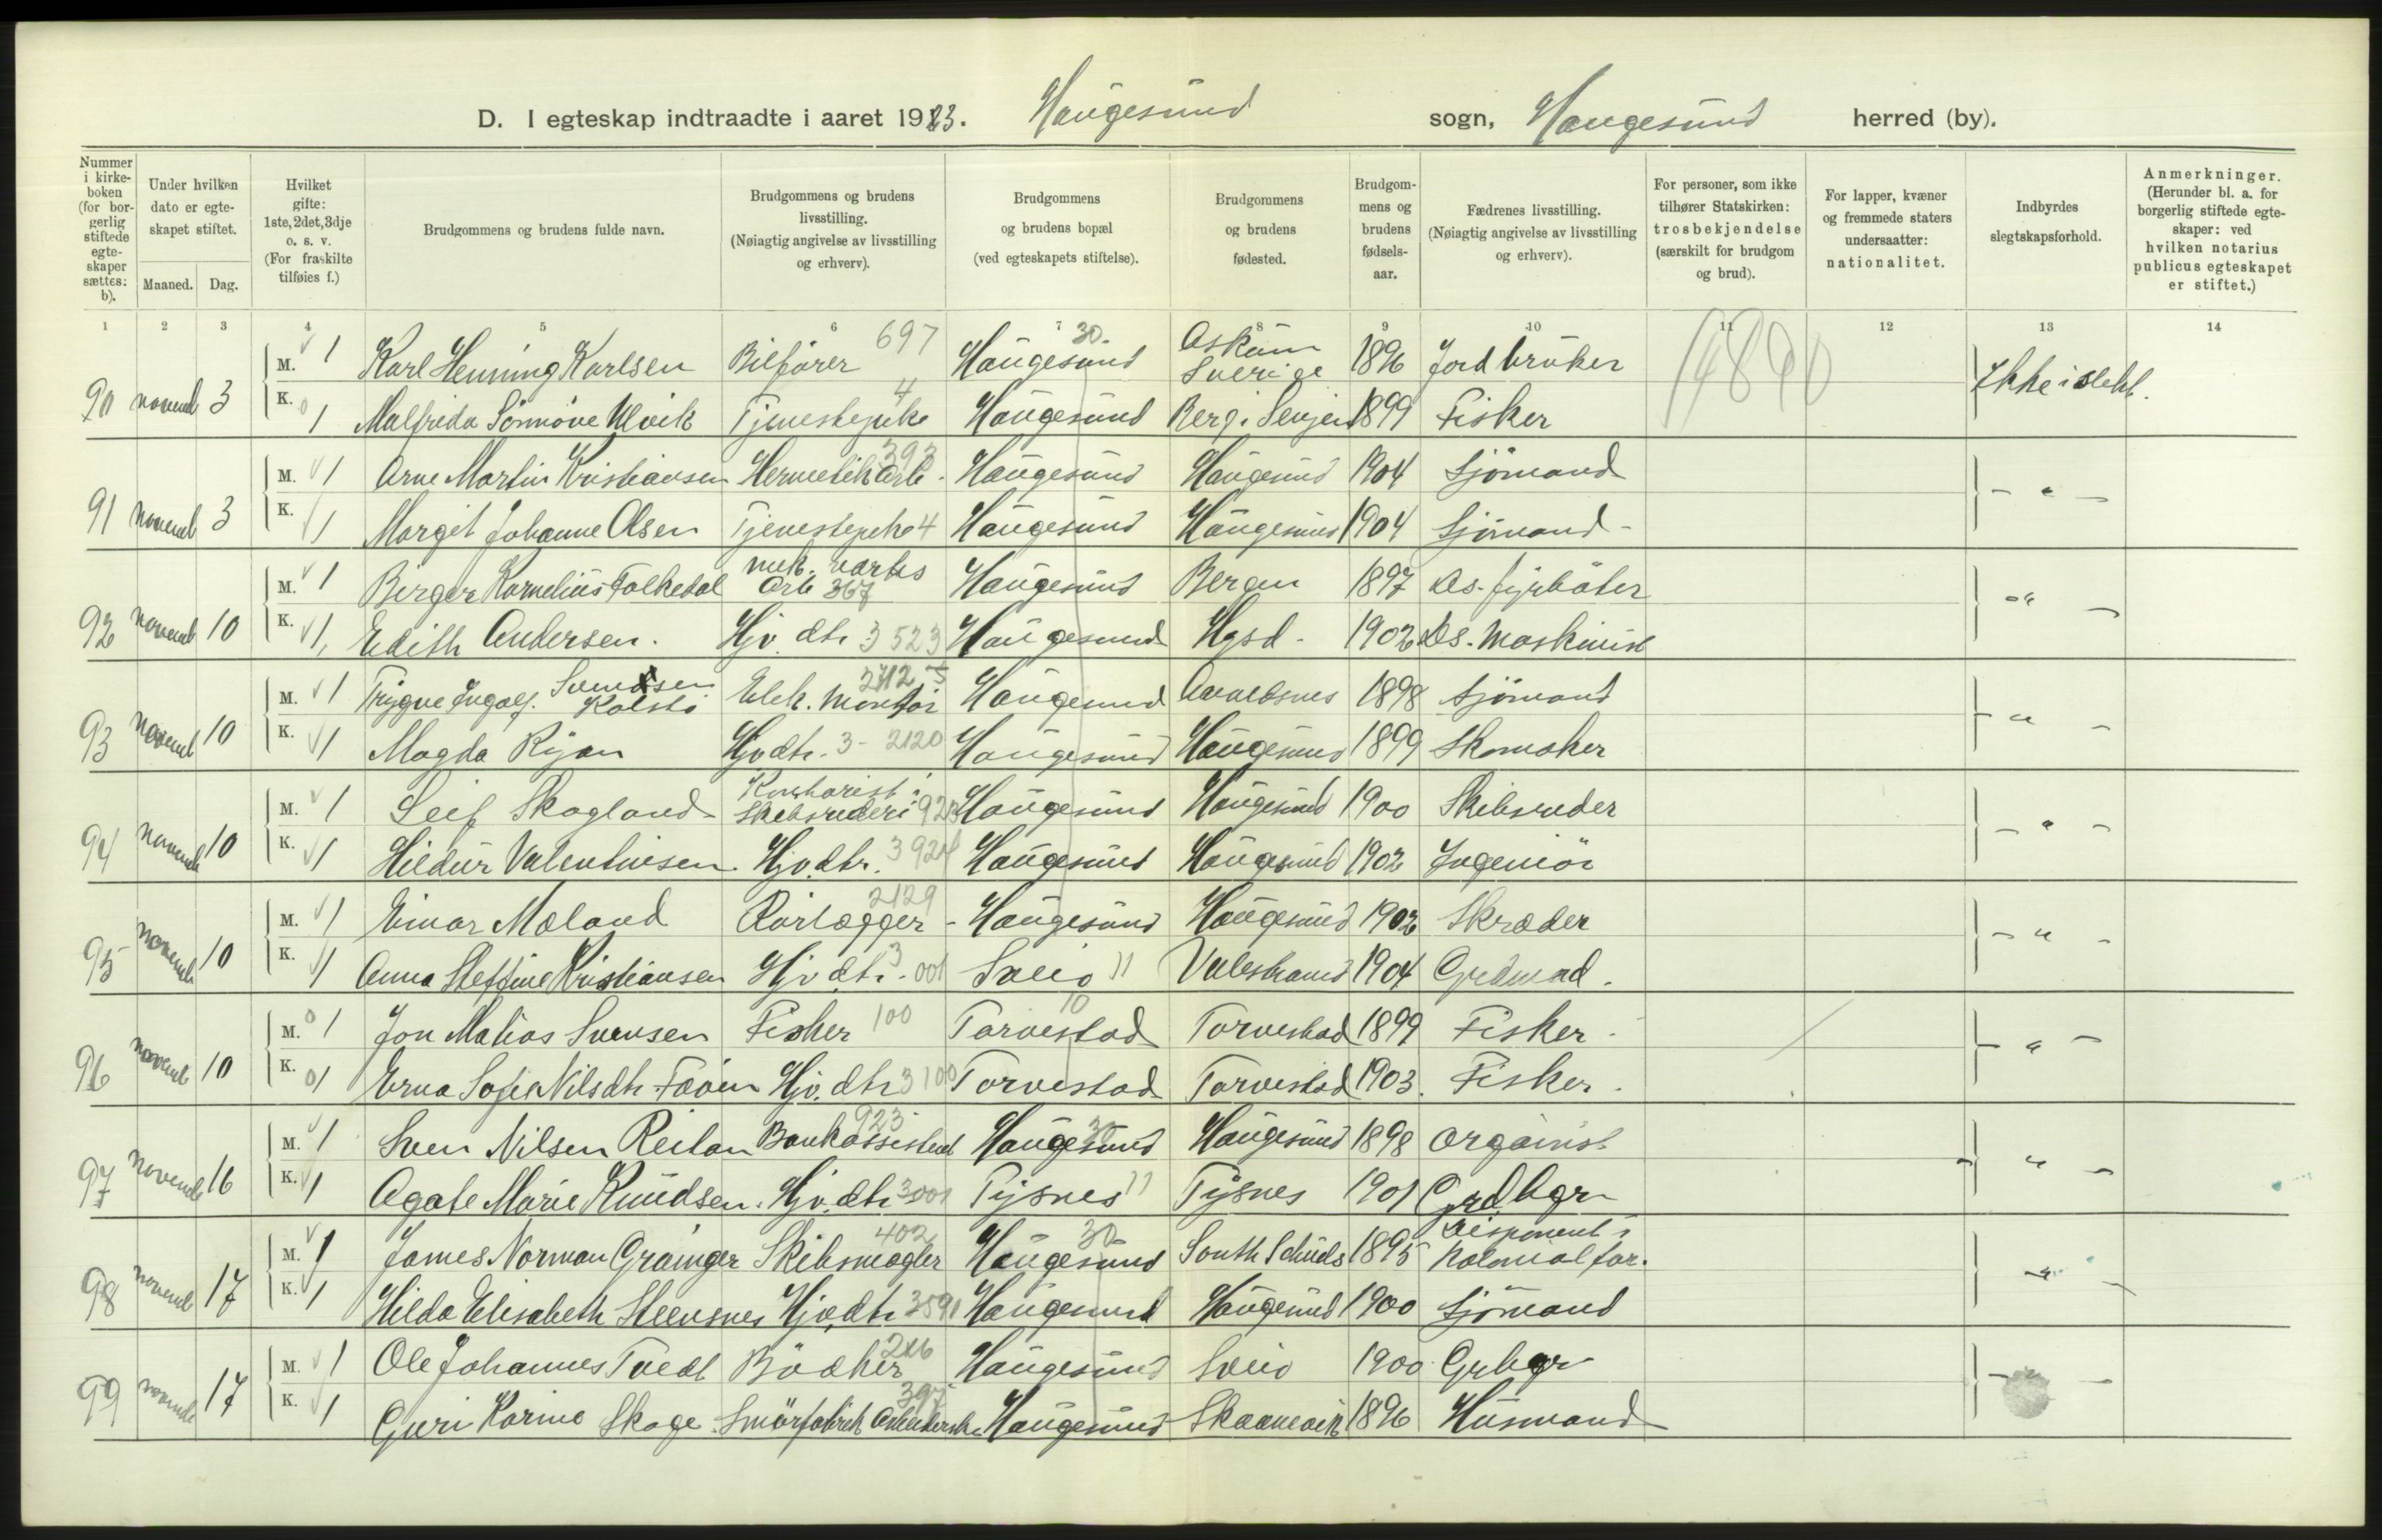 D. I egteskap indtraadte i aaret 1923. Haugesund sogn, Haugesund herred (by).
Nummer i kirkeboken (for borgerlig stiftede egteskaper sættes: b).
Under hvilken dato er egteskapet stiftet.
Maaned. Dag.
Hvilket gifte: 1ste, 2det, 3dje o. s. v. (For fraskilte tilføies f.)
Brudgommens og brudens fulde navn.
Brudgommens og brudens livsstilling. (Nøiagtig angivelse av livsstilling og erhverv).
Brudgommens og brudens bopæl (ved egteskapets stiftelse).
Brudgommens og brudens fødested.
Brudgommens og brudens fødselsaar.
Fædrenes livsstilling. (Nøiagtig angivelse av livsstilling og erhverv).
For personer, som ikke tilhører Statskirken: trosbekjendelse (særskilt for brudgom og brud).
For lapper, kvæner og fremmede staters undersaatter: nationalitet.
Indbyrdes slegtskapsforhold.
Anmerkninger. (Herunder bl. a. for borgerlig stiftede egteskaper: ved hvilken notarius publicus egteskapet er stiftet.)
1 2 3 4 5 6 7 8 9 10 11 12 13 14
90 novemb 3 M. 1 Karl Henning Karlsen Bilfører 697 Haugesund 30. Askum Sverige 1896 Jordbruker Ikke i slekt.
K. 1 Malfrida Sönnöve Ulvik Tjenestepike 4 Haugesund Berg i Senjen 1899 Fisker
91 novemb 3 M. 1 Arne Martin Kristiansen Hermetikarb. 393 Haugesund Haugesund 1904 Sjömand - " -
K. 1 Margit Johanne Olsen Tjenestepike 4 Haugesund Haugesund 1904 Sjömand -
92 novemb 10 M. 1 Birger Kornelius Folkedal mek. verks arb 367 Haugesund Bergen 1897 Ds. fyrböter - " -
K. 1 Edith Andersen. Hjv. dtr 3 523 Haugesund Hgsd. 1902 Ds. Maskinist
93 novemb 10 M. 1 Trygve Ingolf. Svendsen Kolstö Elek. Montör 2712 Haugesund 1898 Sjömand - " -
K. 1 Magda Rijan Hjvdtr. 3 - 2120 Haugesund Haugesund 1899 Skomaker
94 novemb 10 M. 1 Leif Skogland Kontorist i Skibsrederi 923 Haugesund Haugesund 1900 Skibsreder - " -
K. 1 Hildur Valentinsen Hjv. dtr. 3 924 Haugesund Haugesund 1902 Ingeniör
95 novemb 10 M. 1 Einar Moland Rörlægger 2129 - Haugesund Haugesund 1902 Skræder - " -
K. 1 Anna Steffine Kristiansen Hjv. dtr. 3 001 Sveio 11 Valestrand 1904 Grdmand.
96 novemb 10 M. 1 Jon Matias Svensen Fisker 100 Torvestad 10 Torvestad 1899 Fisker. - " -
K. 1 Erna Sofie Nilsdtr Hjv. dtr 3 100 Torvestad Torvestad 1903. Fisker.
97 novemb 16 M. 1 Sven Nilsen Reitan Bankassistent 923 Haugesund 30 Haugesund 1898 Organist - " -
K. 1 Agate Marie Knudsen. Hjv. dtr 3001 Tysnes 11 Tysnes 1901 Grdbgr
98 novemb 17 M. 1 James Norman Grainger Skibsmægler 402 Haugesund 30 South Schields 1895 Disponent i Kolonialfor. - " -
K. 1 Hilda Elisabeth Steensnes Hjvdtr 3591 Haugesund Haugesund 1900 Sjömand
99 novemb 17 M. 1 Ole Johannes Tvedt Bödker 246 Haugesund Sveio 1900 Grbgr - -
K. 1 Guri Karine Skage Smörfabrik Arbeiderske 397 Haugesund Skaanevik 1896 Husmand